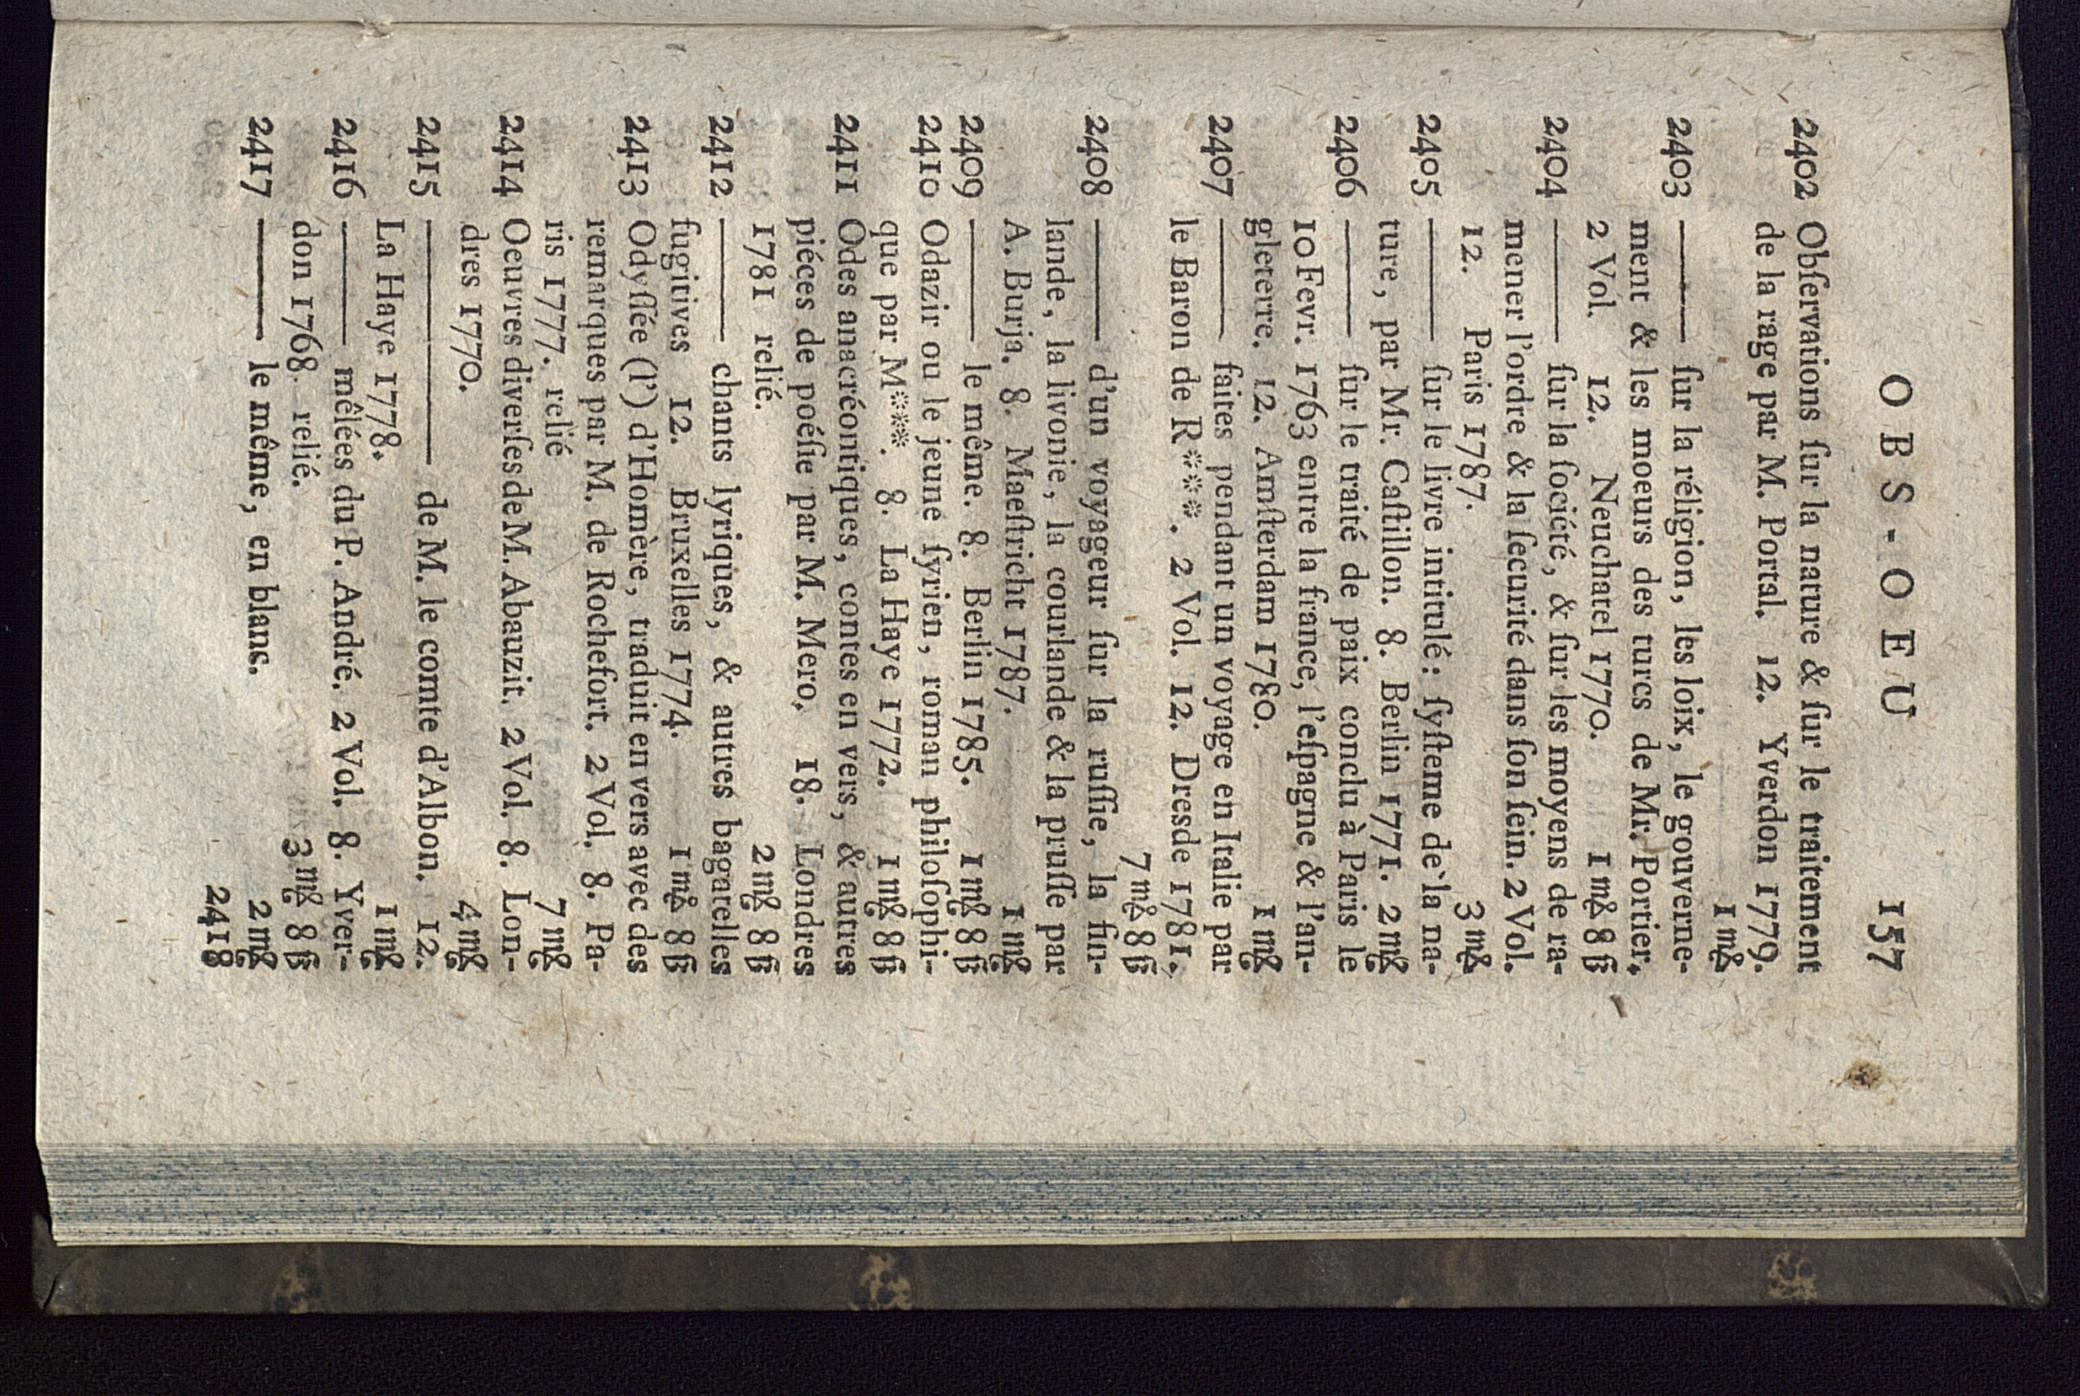 OBS-OEU 157
2402 Obſervations ſur la nature & ſur le traitement
de la rage par M. Portal. 12. Yverdon 1779.
1 m&
2403 ——— ſur la réligion, les loix, le gouverne-
ment & les moeurs des turcs de Mr. Portier.
2 Vol. 12. Neuchatel 1770. 1 m& 8 ß
2404 ——— ſur la ſociété, & ſur les moyens de ra-
mener l'ordre & la ſecurité dans ſon ſein. 2 Vol.
12. Paris 1787. 3 m&
2405 ——— ſur le livre intitulé: ſyſteme de la na-
ture, par Mr. Caſtillon. 8. Berlin 1771. 2 m&
2406 ——— ſur le traité de paix conclu à Paris le
10 Fevr. 1763 entre la france, l'eſpagne & l'an-
gleterre. 12. Amſterdam 1780. 1 m&
2407 ——— faites pendant un voyage en Italie par
le Baron de R***. 2 Vol. 12. Dresde 1781.
7 m& 8 ß
2408 ——— d'un voyageur ſur la ruſſie, la fin-
lande, la livonie, la courlande & la pruſſe par
A. Burja. 8. Maeſtricht 1787. 1 m&
2409 ——— le même. 8. Berlin 1785. 1 m& 8 ß
2410 Odazir ou le jeune ſyrien, roman philoſophi-
que par M***. 8. La Haye 1772. 1 m& 8 ß
2411 Odes anacréontiques, contes en vers, & autres
piéces de poéſie par M. Mero. 18. Londres
1781 relié. 2 m& 8 ß
2412 ——— chants lyriques, & autres bagatelles
fugitives 12. Bruxelles 1774. 1 m& 8 ß
2413 Odyſſée (l') d'Homère, traduit en vers avec des
remarques par M. de Rochefort. 2 Vol. 8. Pa-
ris 1777. relié 7 m&
2414 Oeuvres diverſes de M. Abauzit. 2 Vol. 8. Lon-
dres 1770. 4 m&
2415 —————— de M. le comte d'Albon. 12.
La Haye 1778. 1 m&
2416 ——— mêlées du P. André. 2 Vol. 8. Yver-
don 1768. relié. 3 m& 8 ß
2417 ——— le même, en blanc. 2 m&
2418